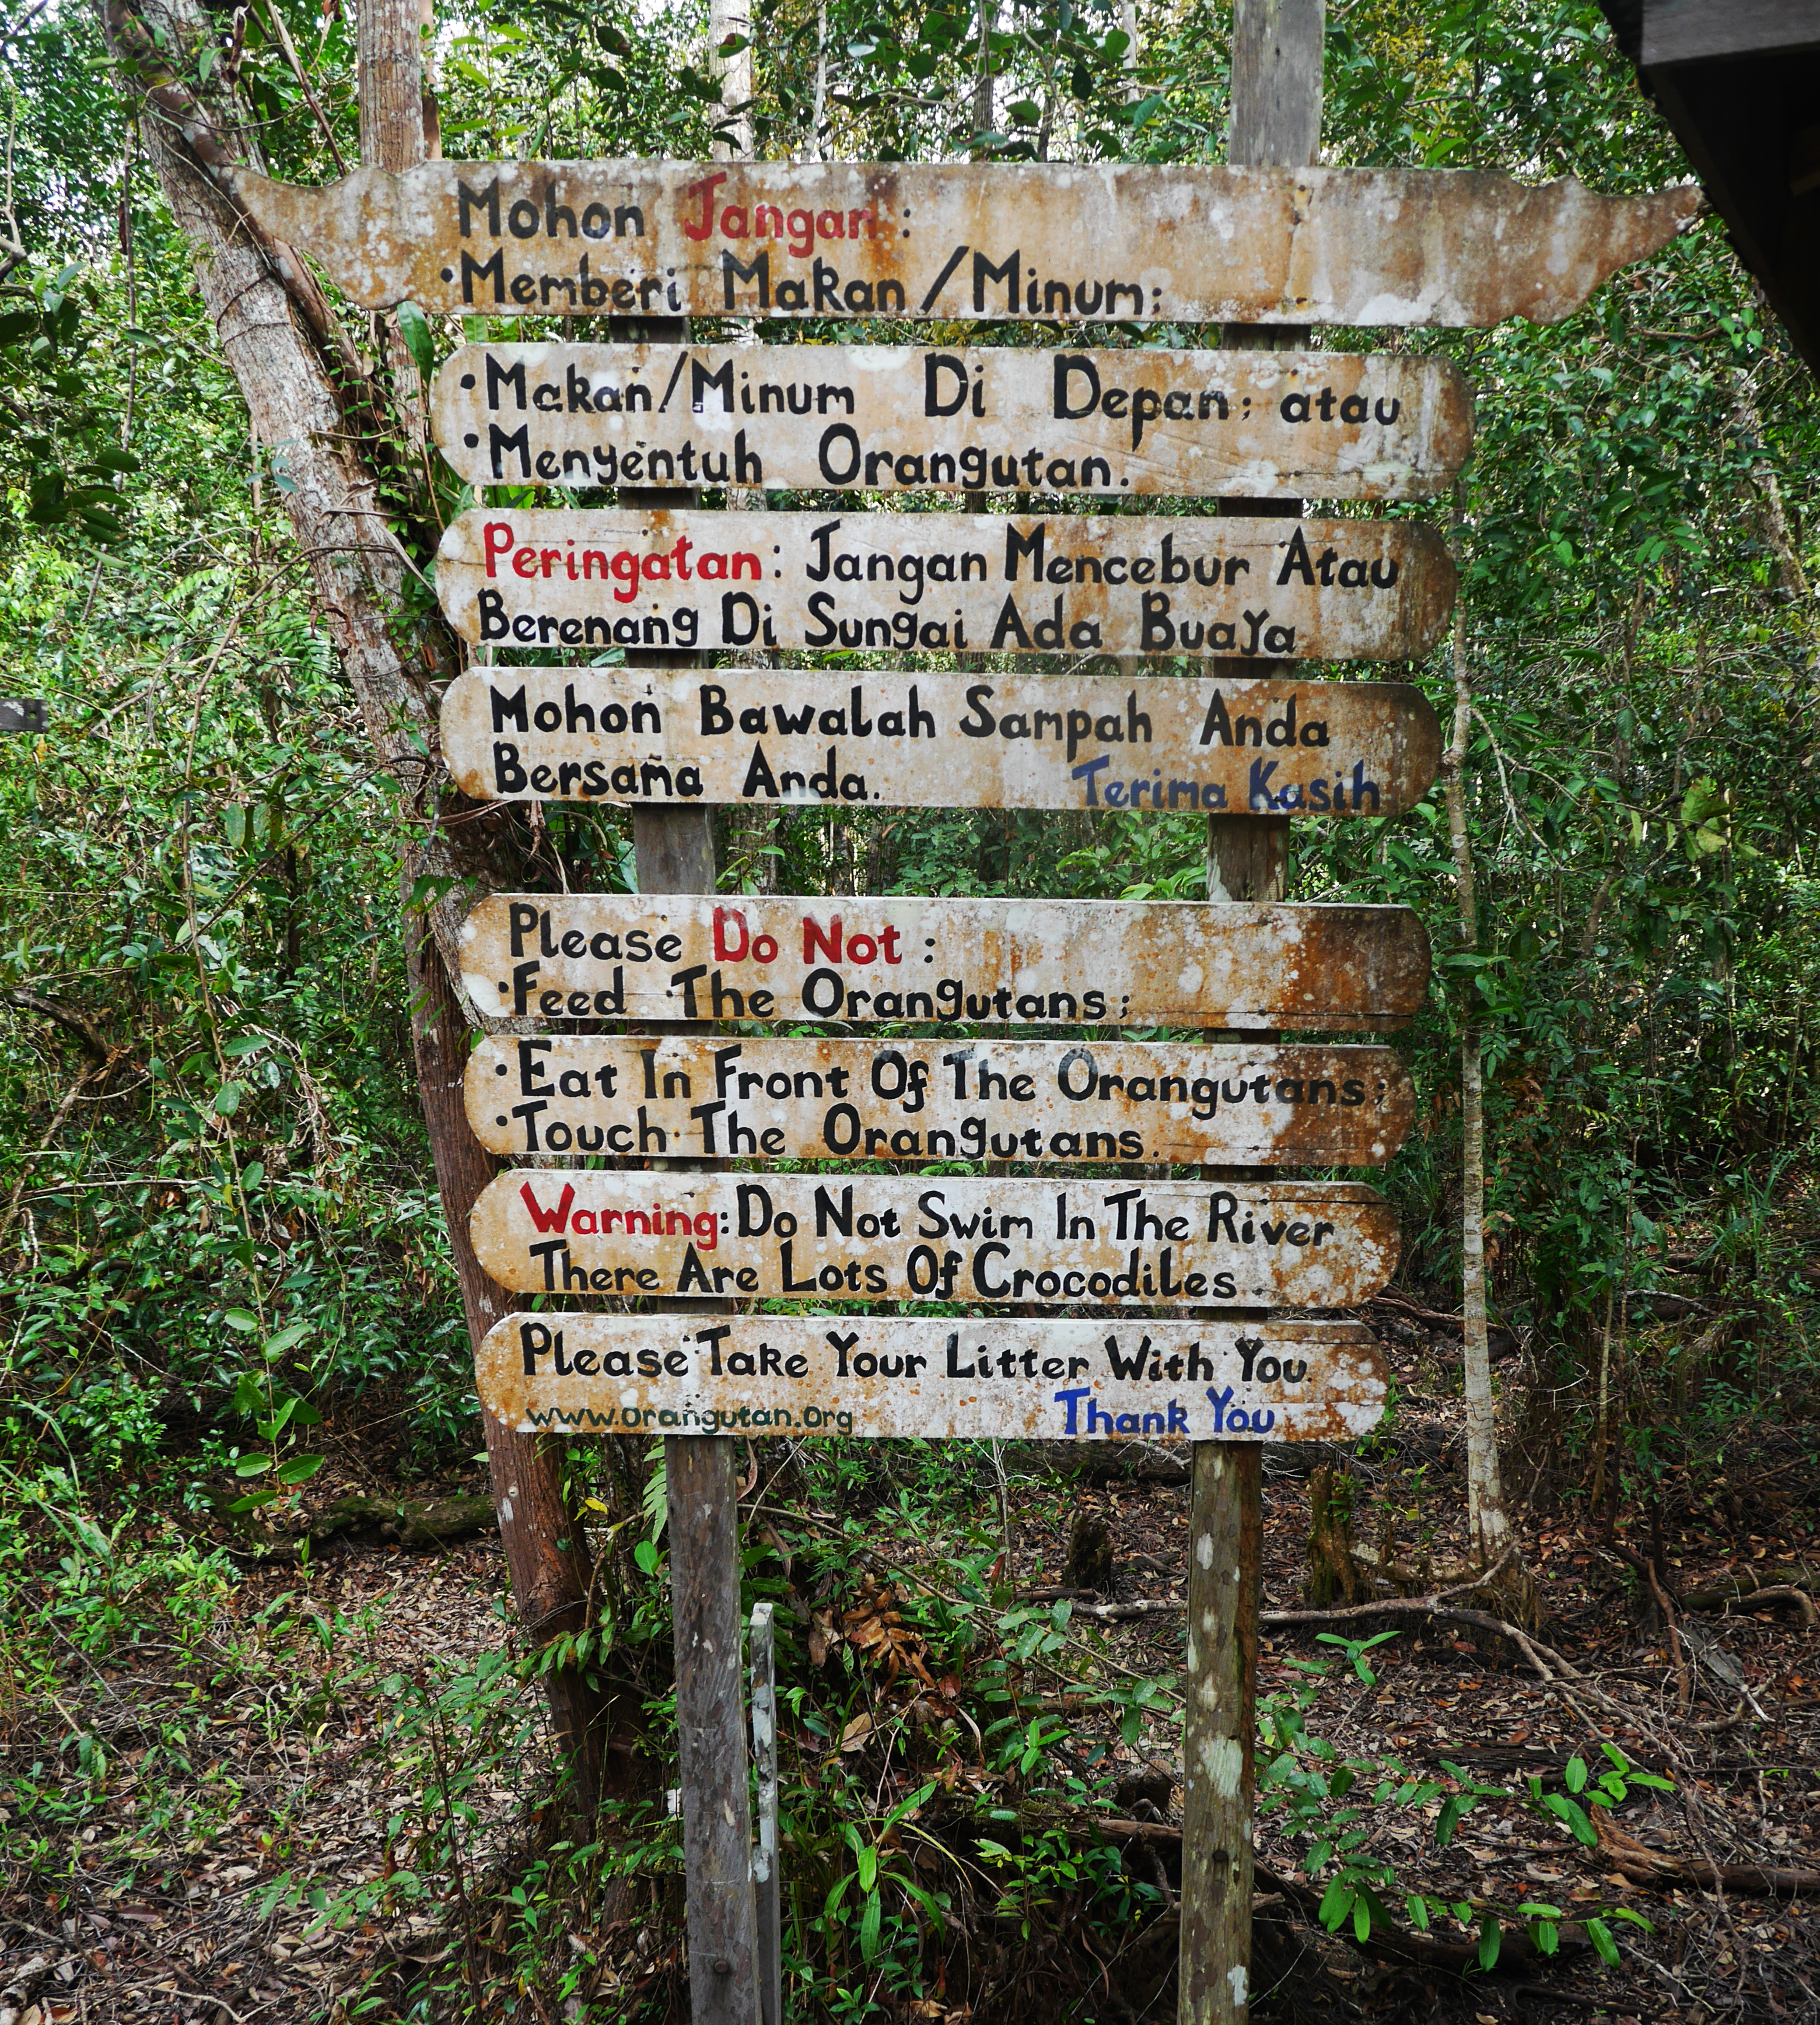 Mohon Jangan :
•Memberi Makan/Minum;
•Makan/Minum Di Depan; atau
•Menyentuh Orangutan.
Peringatan: Jangan Mencebur Atau
Berenang Di Sungai Ada Buaya
Mohon Bawalah Sampah Anda
Bersama Anda. Terima Kasih
Please Do Not :
•Feed The Orangutans;
•Eat In Front Of The Orangutans;
•Touch The Orangutans.
Warning: Do Not Swim In The River
There Are Lots Of Crocodiles.
Please Take Your Litter With You.
www.orangutan.org Thank You